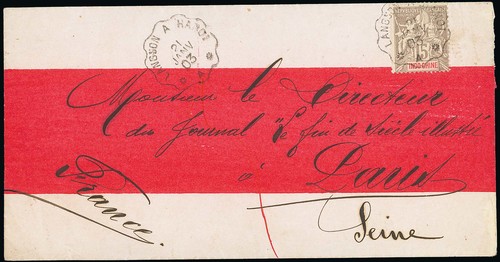 LANGSON A HANOI
21
JANV
03
LANGSON
15
INDO-CHINE
Monsieur le Directeur
du Journal "Le fin de siècle illustré
à Paris
France.
Seine